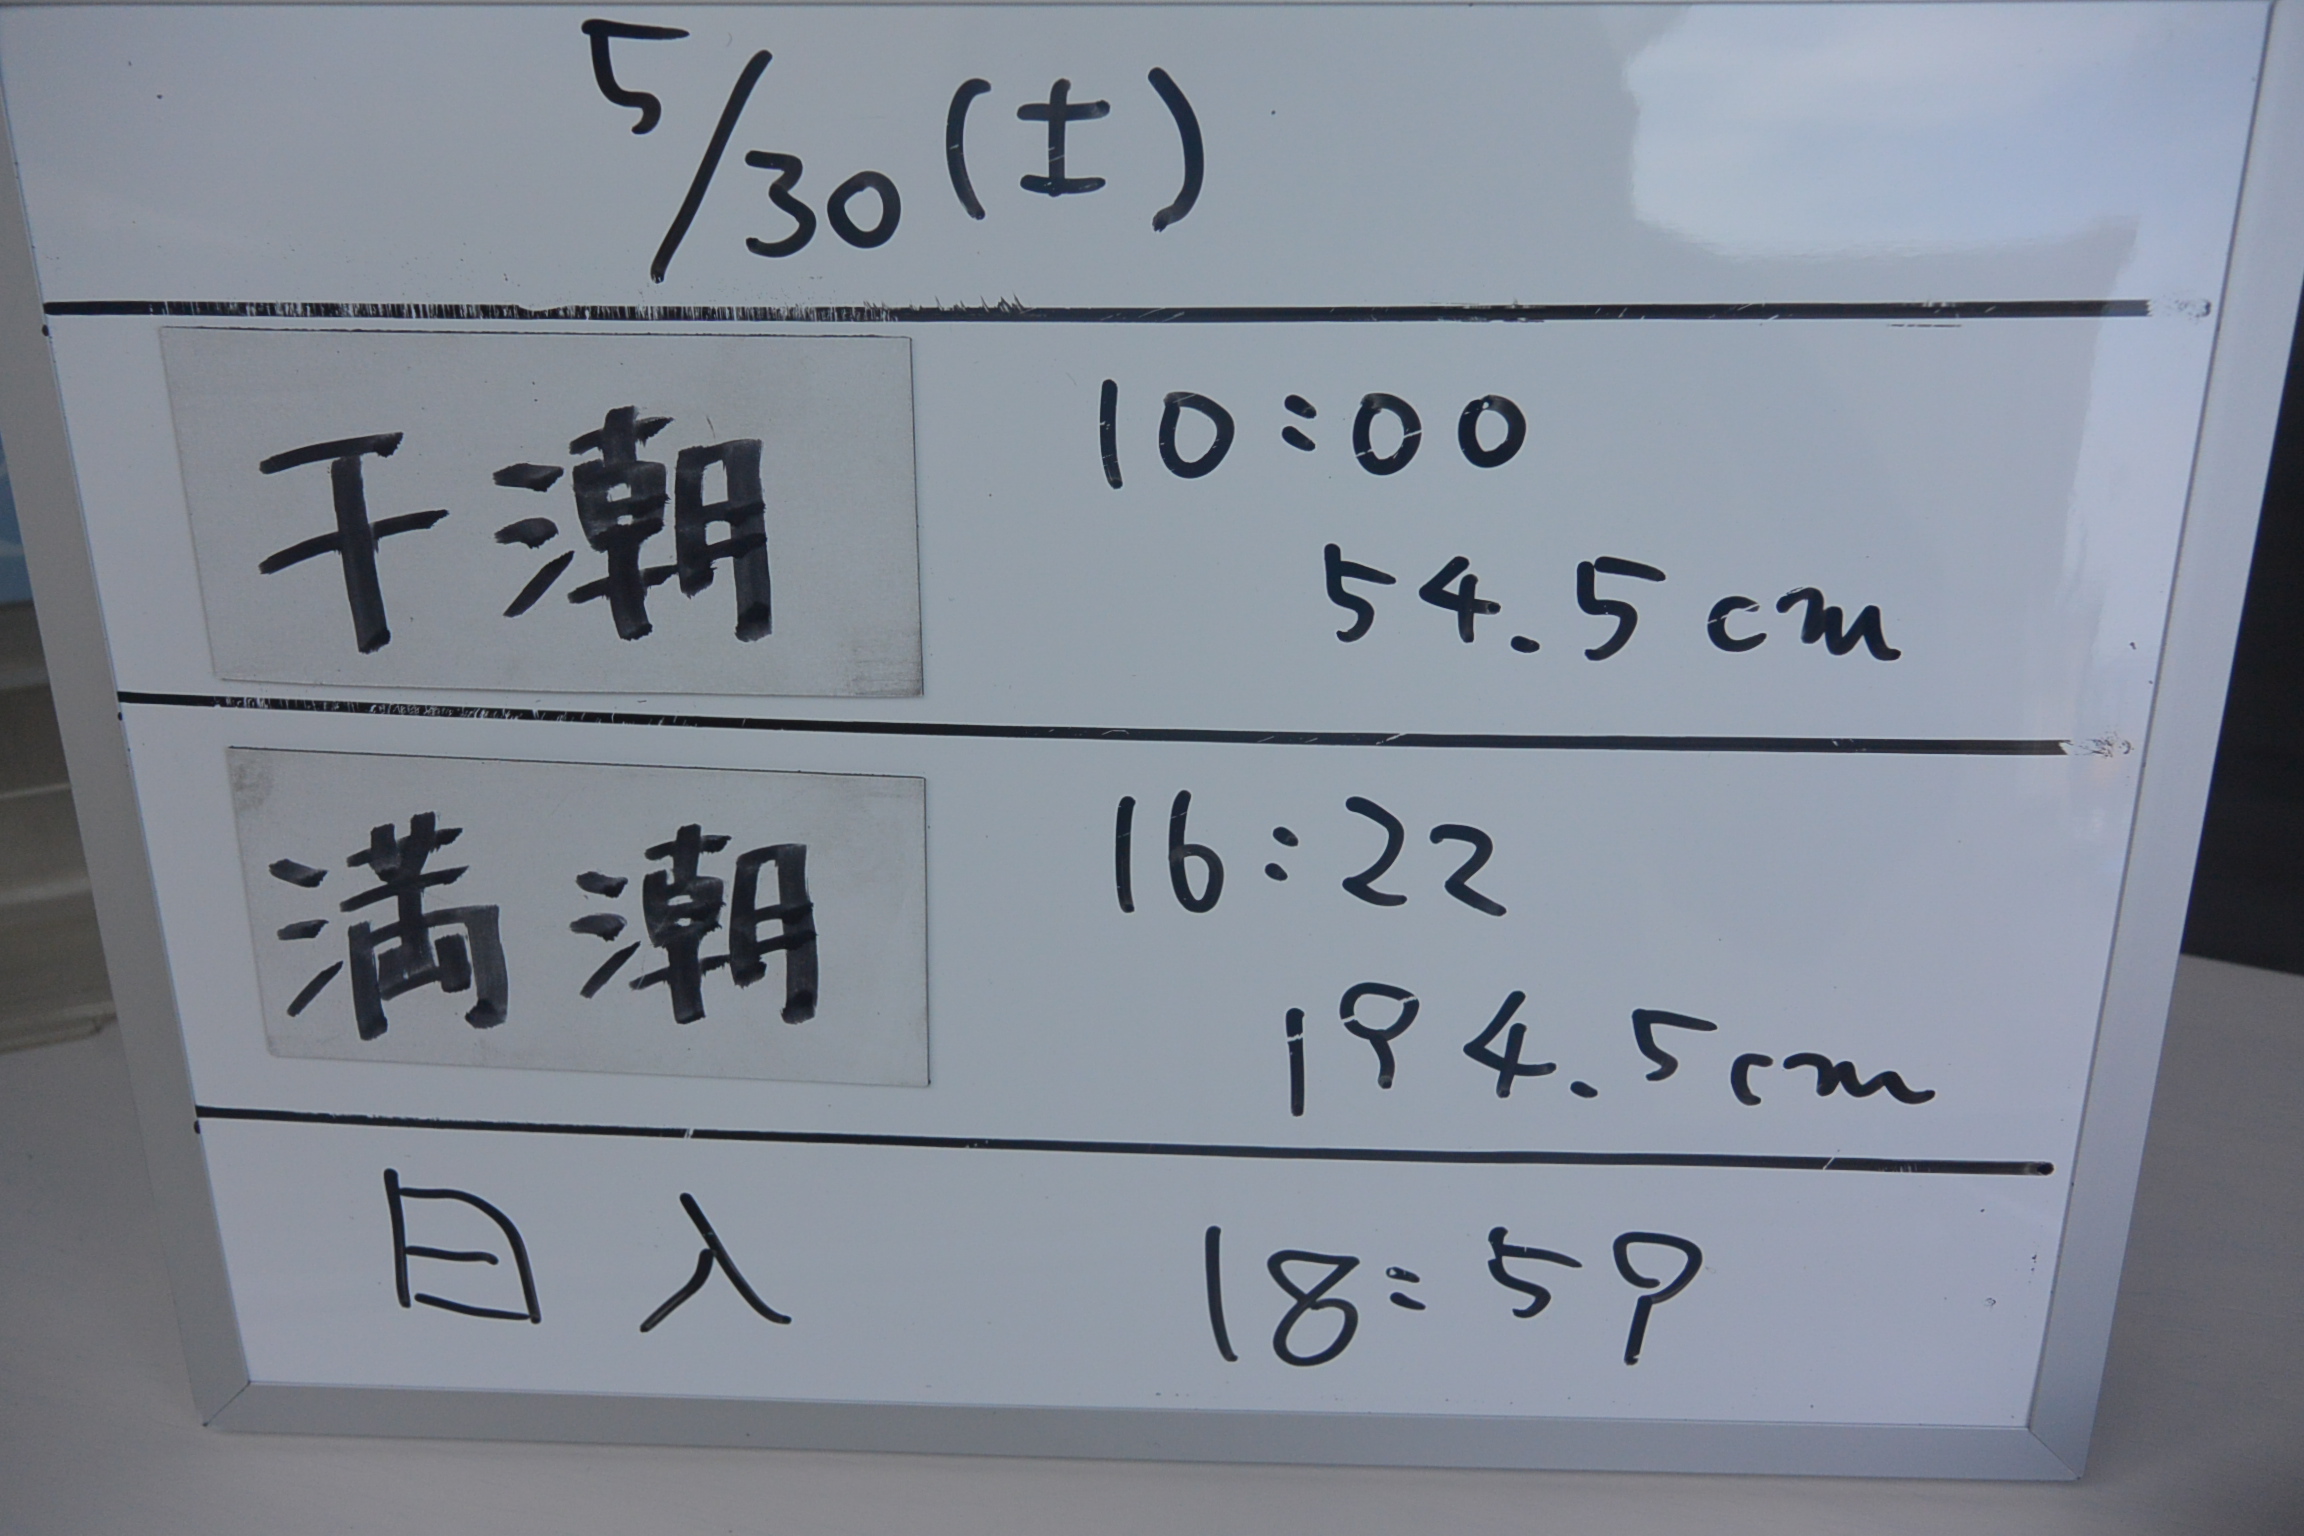 5/30(土)
干潮 10:00
54.5cm
満潮 16:22
194.5cm
日入 18:59